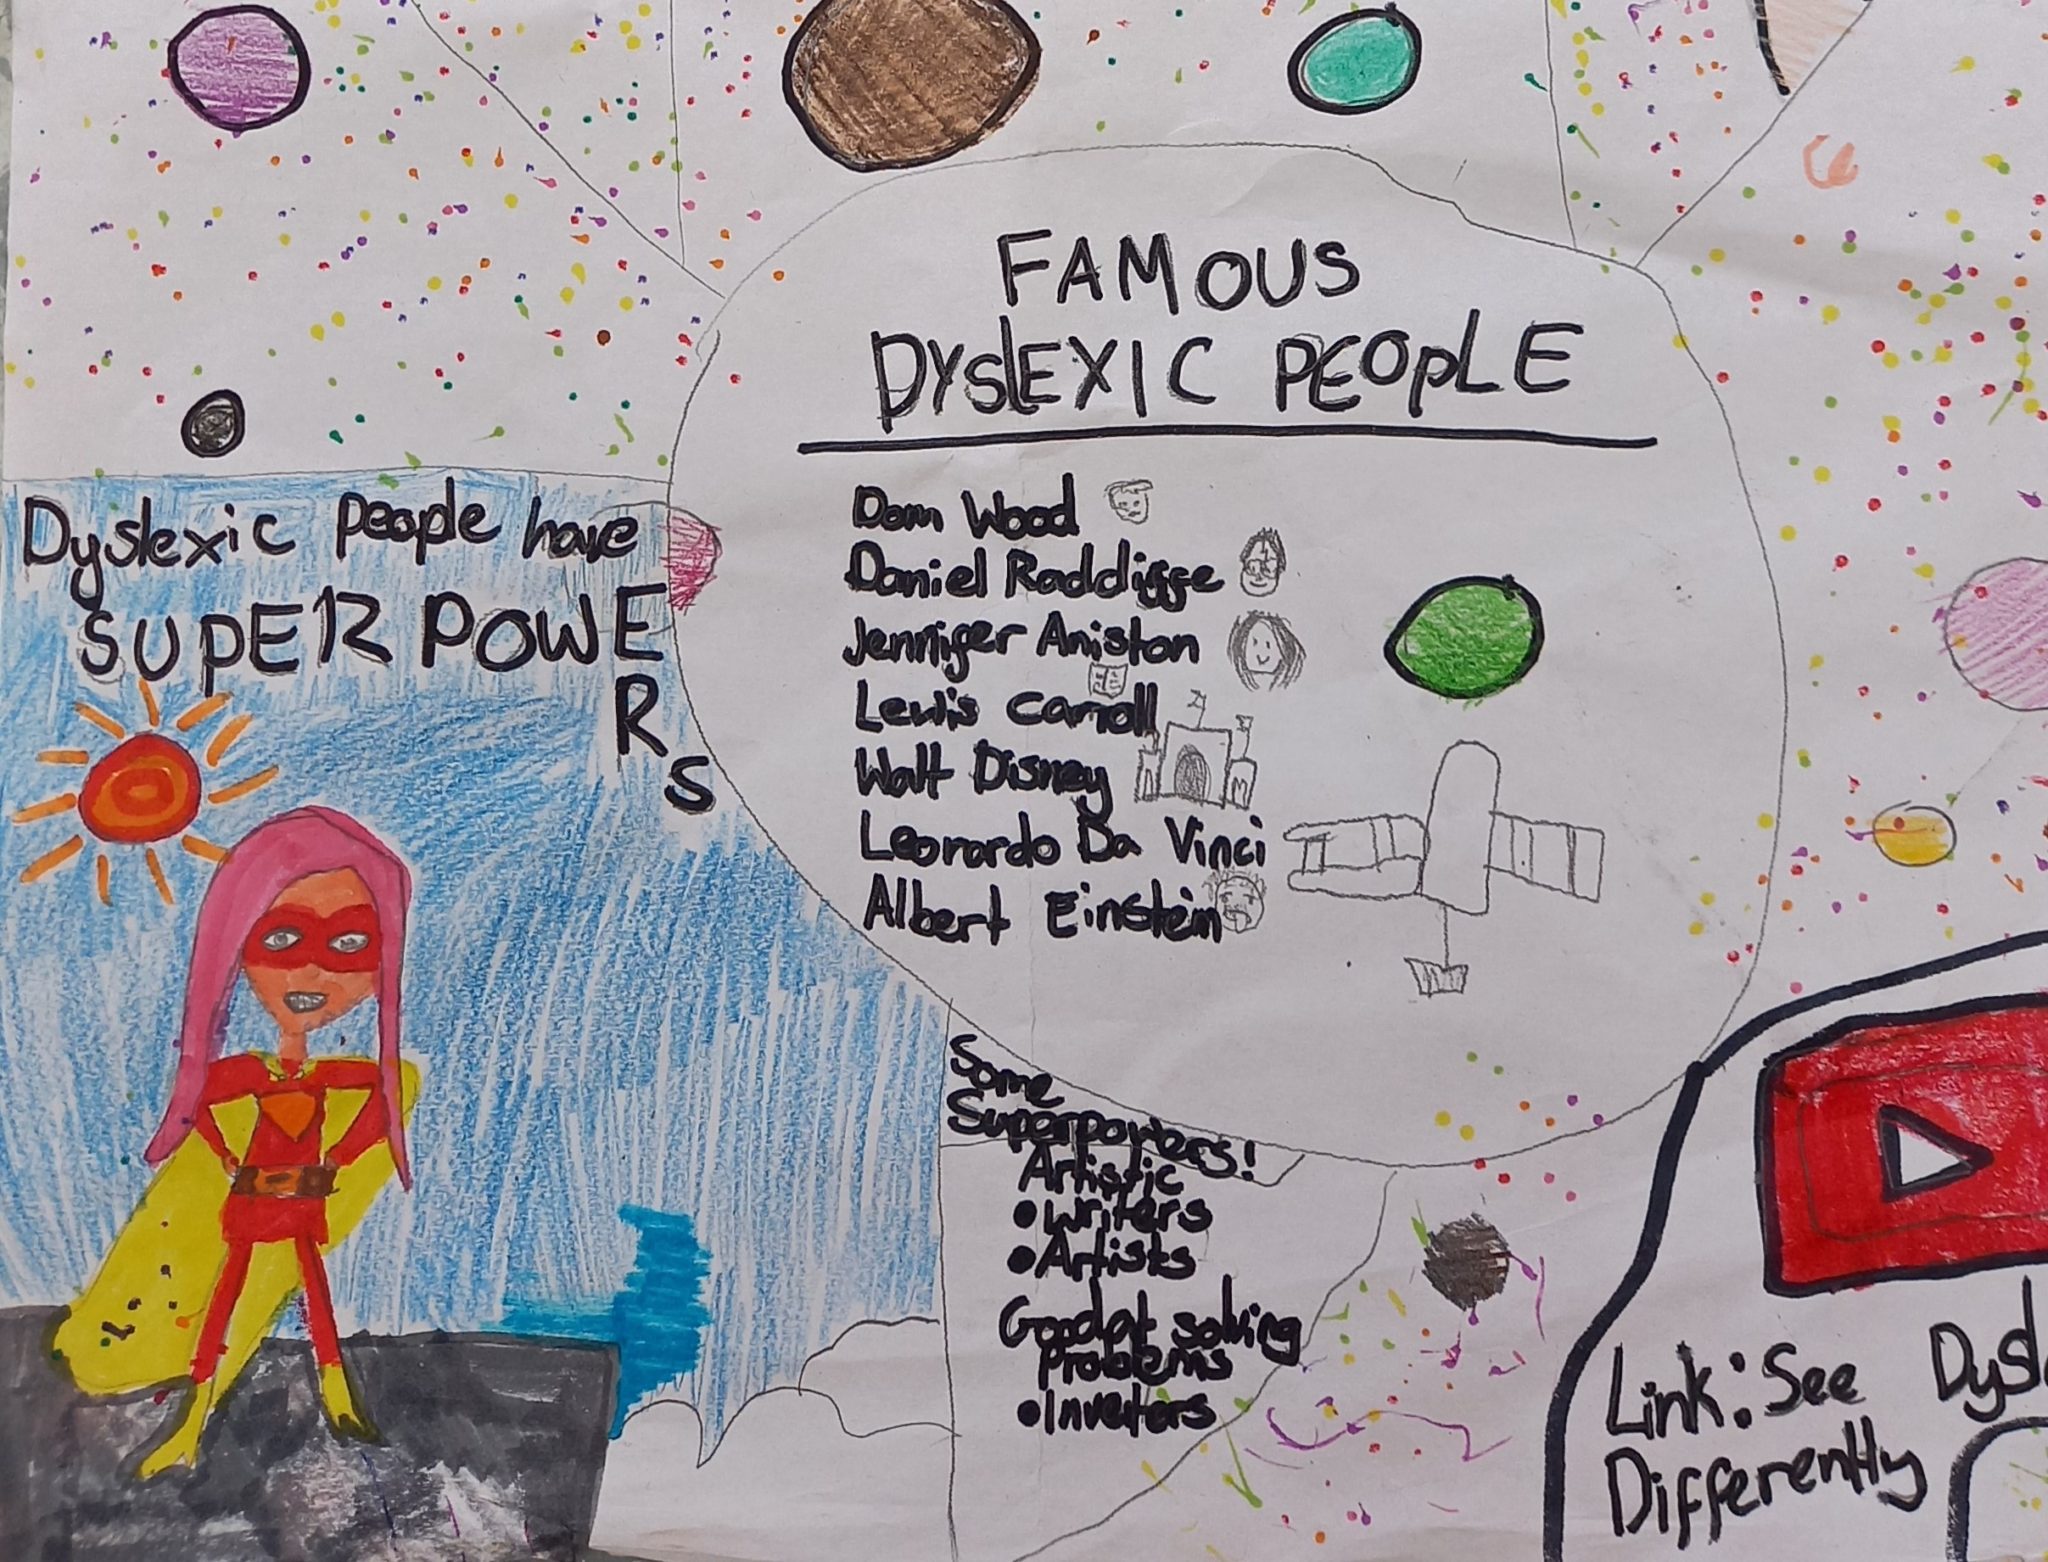 FAMOUS
DYSLEXIC PEOPLE
Dom Wood
Daniel Raddliffe
Jennifer Aniston
Lewis Carroll
Walt Disney
Leonardo Da Vinci
Albert Einstein
Dyslexic people have
SUPERPOWERS
Some
Superpowers!
Artistic
• Writers
• Artists
Good at solving
problems
• Inventers
Link: See Dysl
Differently